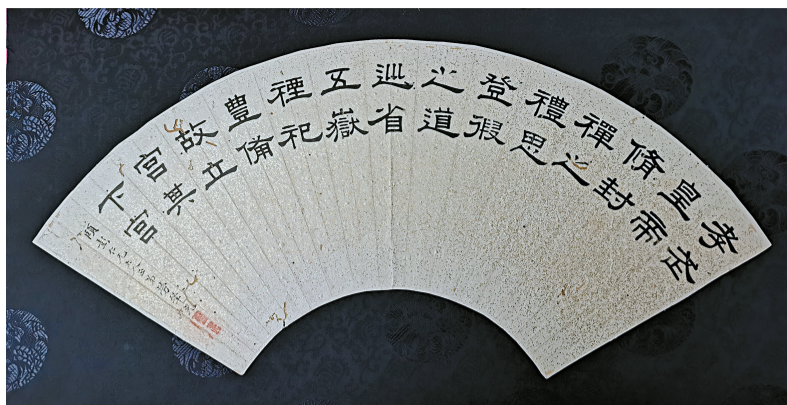 孝武
皇帝
脩封
禪之
禮思
登徦
之道
巡省
五嶽
禋祀
豊備
故立
宮其
下宮
仁兄大人